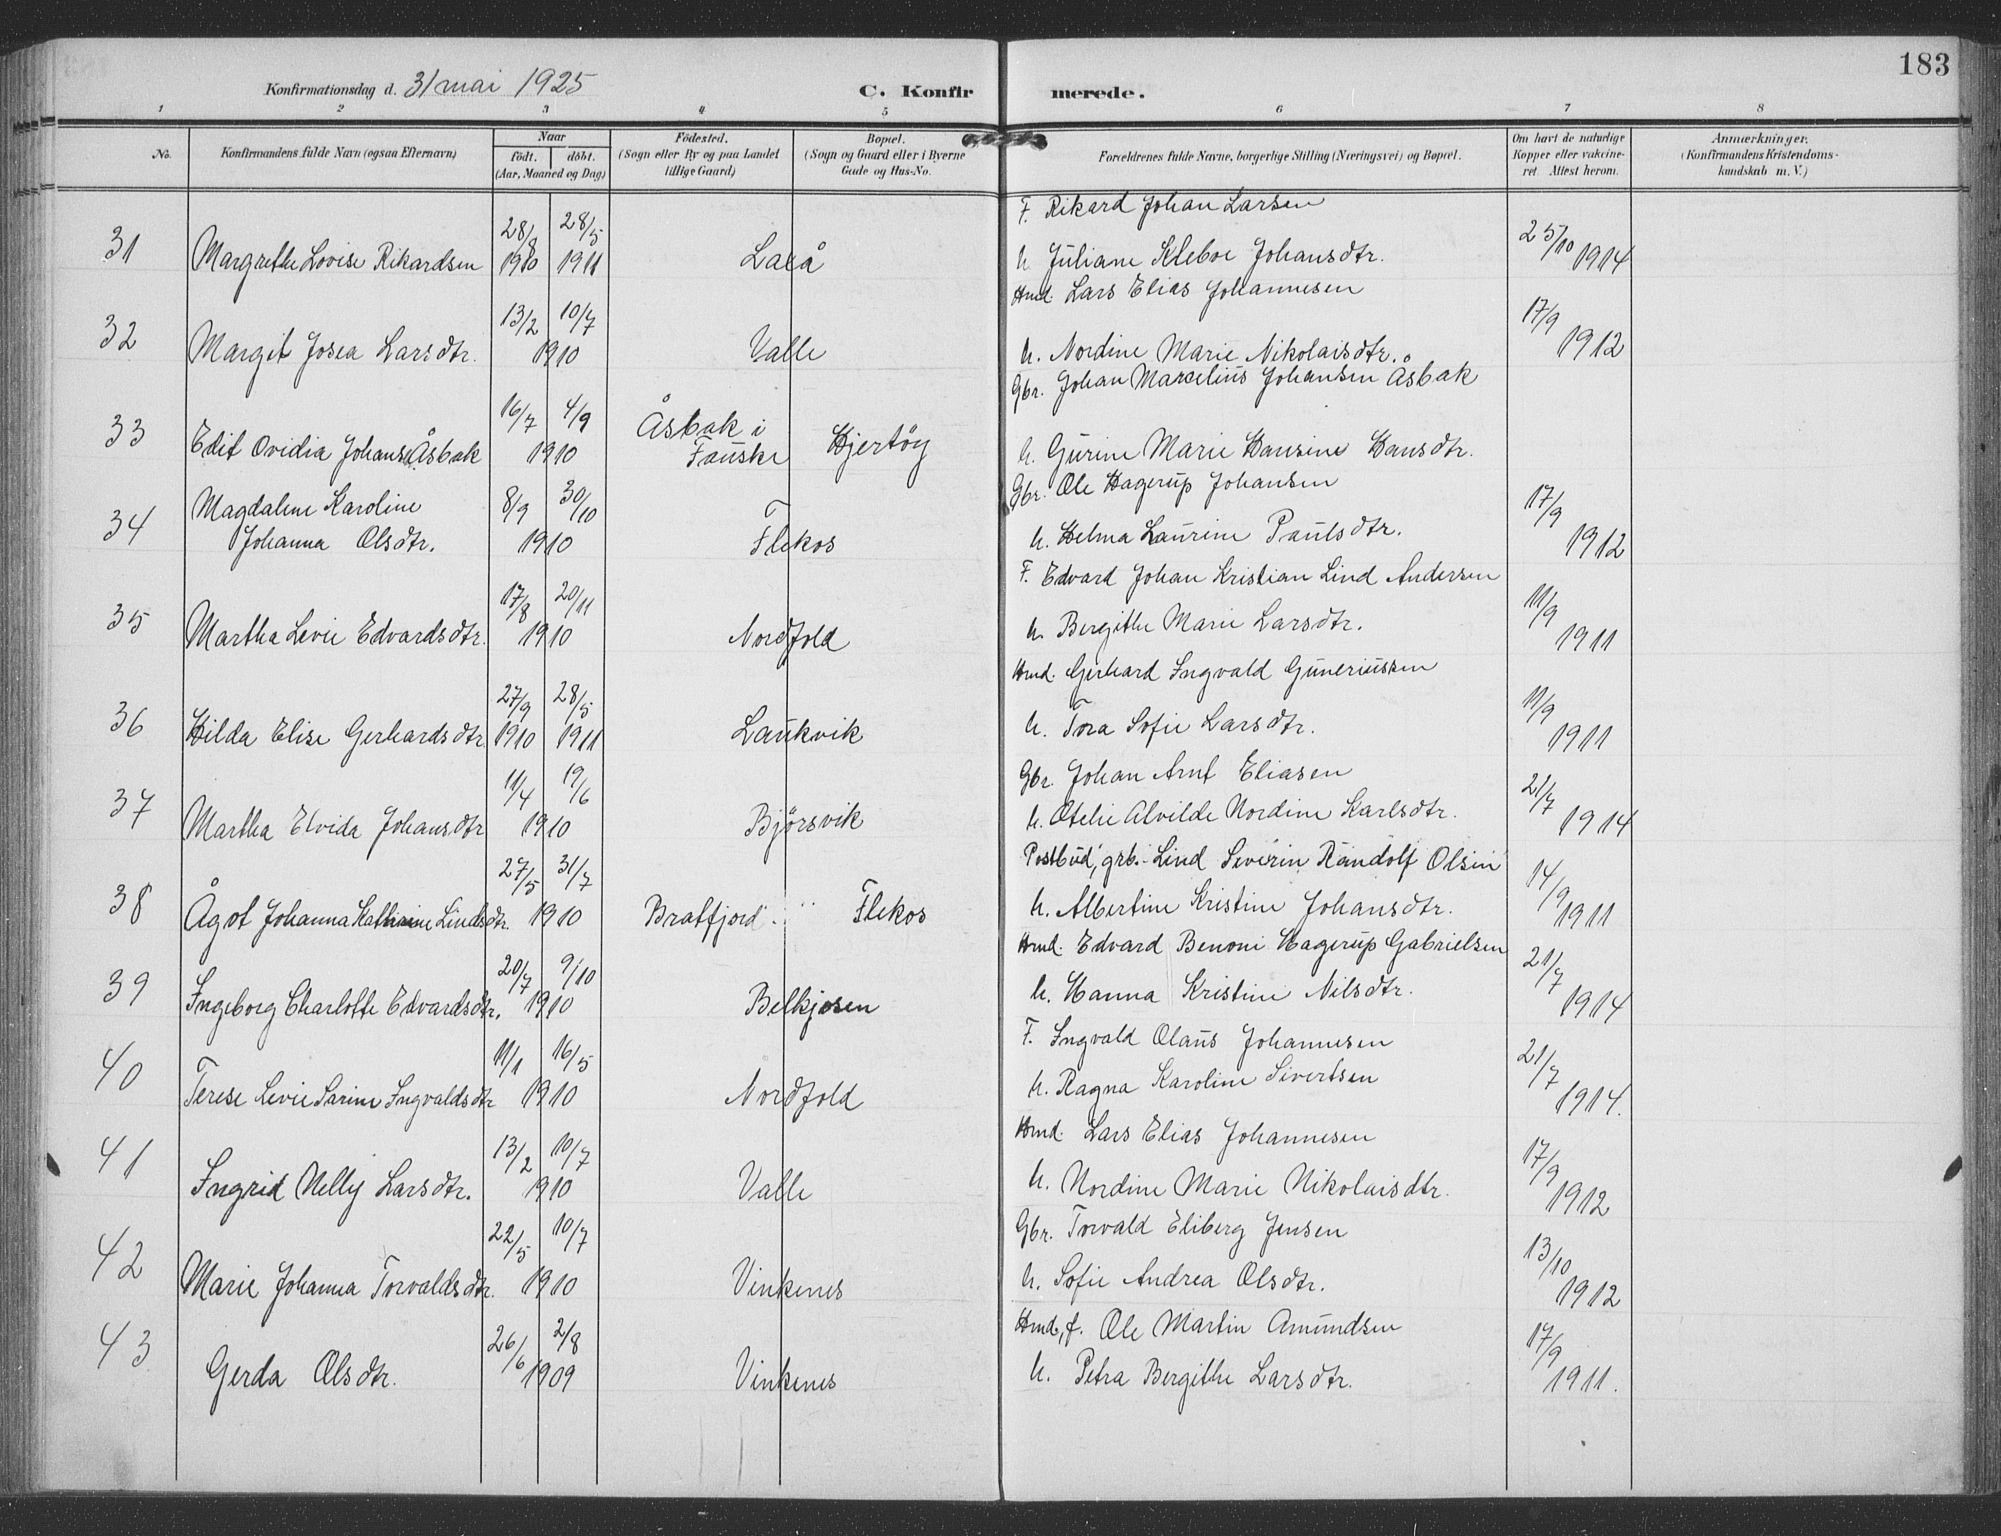 183
Konfirmationsdag d. 31 mai 1925
C. Konfirmerede.
1 2 3 4 5 6 7 8
No.
Konfirmandens fulde Navn (ogsaa Efternavn)
Naar
født. døbt.
(Aar, Maaned og Dag)
Födested.
(Sogn eller By og paa Landet
tillige Gaard)
Bopæl.
(Sogn og Gaard eller i Byerne
Gade og Hus-No.
Forældrenes fulde Navne, borgerlige Stilling (Næringsvei) og Bopæl.
Om havt de naturlige
Kopper eller vakcine-
ret Attest herom.
Anmærkninger.
(Konfirmandens Kristendoms-
kundskab m. V.)
F. Rikard Johan Larsen
31 Margrethe Lovise Rikardsen 28/8 1910 28/5 1911 Laxå
h. Juliane Kleboe Johansdtr. 25/10 1914
Hmd. Lars Elias Johannesen
32 Margit Josea Larsdtr. 13/2 10/7 1910 Valle
h. Nordine Marie Nikolaisdtr. 17/9 1912
Gbr. Johan Marcelius Johansen Åsbak
33 Edit Ovidia Johans. Åsbak 16/7 4/9 1910 Åsbak i
Fauske Hjertøy
h. Gurine Marie Hansine Hansdtr.
Gbr. Ole Hagerup Johansen
34 Magdalene Karoline
Johanna Olsdtr. 8/9 30/10 1910 Flekos
h. Helma Laurine Paulsdtr. 17/9 1912
F. Edvard Johan Kristian Lind Andersen
35 Martha Levie Edvardsdtr. 17/8 20/11 1910 Nordfold
h. Bergithe Marie Larsdtr. 11/9 1911
Hmd. Gerhard Ingvald Guneriussen
36 Hilda Elise Gerhardsdtr. 27/9 1910 28/5 1911 Laukvik
h. Tora Sofie Larsdtr. 11/9 1911
Gbr. Johan Arnt Eliasen
37 Martha Elvida Johansdtr 11/4 19/6 1910 Bjørsvik
h. Otelie Alvilde Nordine Karlsdtr. 21/7 1914
Postbud, grb. Lind Severin Randolf Olsen
38 Ågot Johanna Kathrine Lindsdtr. 27/5 31/7 1910 Bratfjord Flekos
h. Albertine Kristine Johansdtr. 14/9 1911
Hmd. Edvard Benoni Hagerup Gabrielsen
39 Ingeborg Charlotte Edvardsdtr. 20/7 9/10 1910 Belkjosen
h. Hanna Kristine Nilsdtr. 21/7 1914
F. Ingvald Olaus Johannesen
40 Terese Levie Sarine Ingvaldsdtr 11/1 16/5 1910 Nordfold
h. Ragna Karoline Sivertsen 21/7 1914.
Hmd. Lars Elias Johannesen
41 Ingrid Nelly Larsdtr. 13/2 10/7 1910 Valle
h. Nordine Marie Nikolaisdtr. 17/9 1912
Gbr. Torvald Eliberg Jensen
42 Marie Johanna Torvaldsdtr. 22/5 10/7 1910 Vinkenes
h. Sofie Andrea Olsdtr. 13/10 1912
Hmd, f. Ole Martin Amundsen
43 Gerda Olsdtr. 26/6 2/8 1909 Vinkenes
h. Petra Bergithe Larsdtr. 17/9 1911.